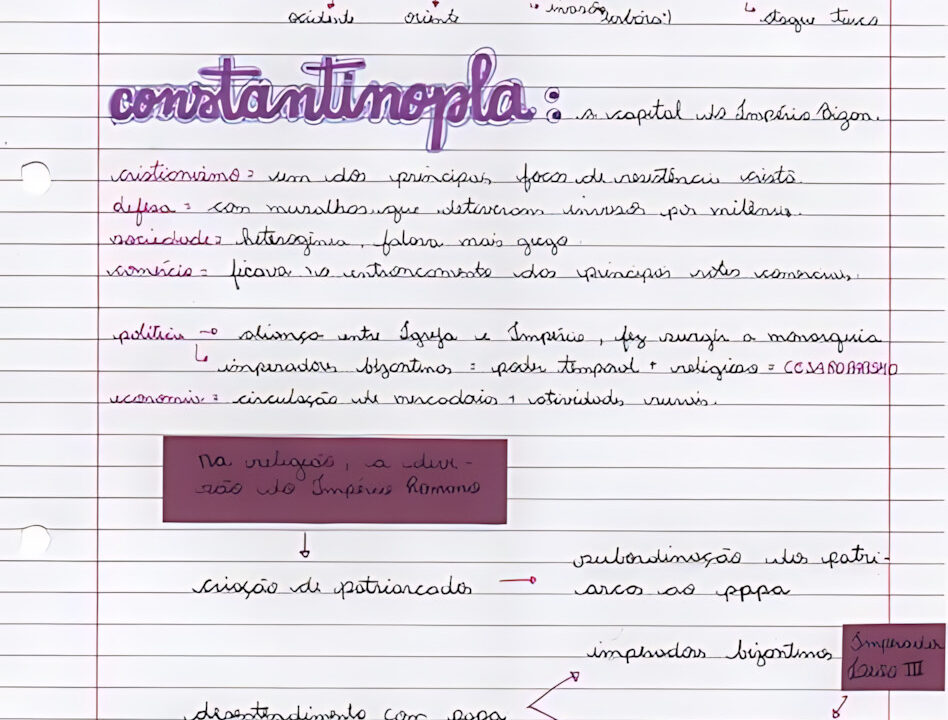 ocidente oriente invasão bárbara) ataque turco
constantinopla: a capital do Império Bizan.
cristianismo = um dos principais focos de resistência cristã.
defesa = com muralhas que detiveram invasor por milênio.
sociedade = heterogênea, falava mais grego
comércio = ficava no entroncamento das principais rotas comerciais.
política → aliança entre Igreja e Império, fez surgir a monarquia
imperadores bizantinos = poder temporal + religioso = CESAROPAPISMO
economia = circulação de mercadorias + atividades rurais.
na religião, a divi-
são do Império Romano
criação de patriarcados → subordinação dos patri-
arcas ao papa
imperadores bizantinos Imperador
Leão III
desentendimento com papa